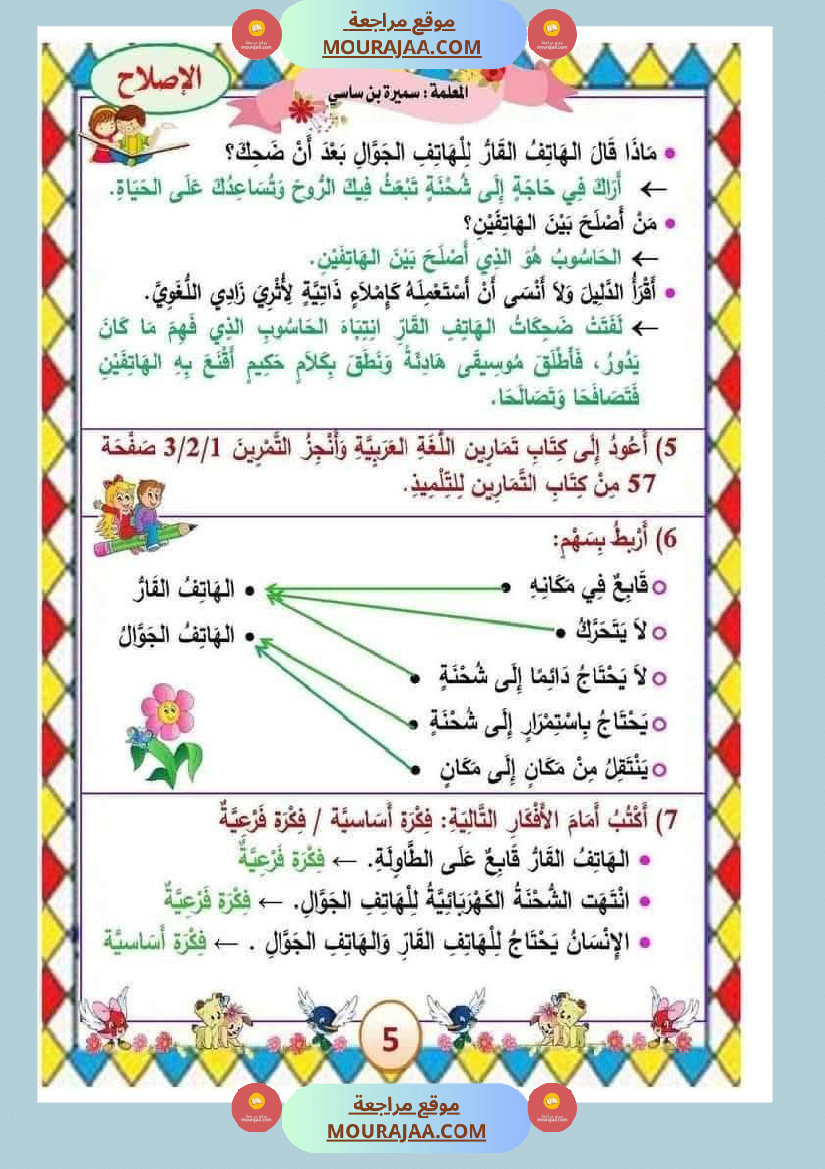 موقع مراجعة
MOURAJAA.COM
الإصلاح
المعلمة : سميرة بن ساسي
• مَاذَا قَالَ الهَاتِفُ القَارُّ لِلْهَاتِفِ الجَوَّالِ بَعْدَ أَنْ ضَحِكَ؟
← أَرَاكَ فِي حَاجَةٍ إِلَى شُحْنَةٍ تَبْعَثُ فِيكَ الرُّوحَ وَتُسَاعِدُكَ عَلَى الحَيَاةِ.
• مَنْ أَصْلَحَ بَيْنَ الهَاتِفَيْنِ؟
← الحَاسُوبُ هُوَ الذِي أَصْلَحَ بَيْنَ الهَاتِفَيْنِ.
• أَقْرَأُ الدَّلِيلَ وَلاَ أَنْسَى أَنْ أَسْتَعْمِلَهُ كَإِمْلاَءٍ ذَاتِيَّةٍ لِأُثْرِيَ زَادِي اللُّغَوِيَّ.
← لَفَتَتْ ضَحِكَاتُ الهَاتِفِ القَارِّ انِتِبَاهَ الحَاسُوبِ الذِي فَهِمَ مَا كَانَ
يَدُورُ، فَأَطْلَقَ مُوسِيقَى هَادِئَةً وَنَطَقَ بِكَلاَمٍ حَكِيمٍ أَقْنَعَ بِهِ الهَاتِفَيْنِ
فَتَصَافَحَا وَتَصَالَحَا.
5) أَعُودُ إِلَى كِتَابِ تَمَارِين اللُّغَةِ العَرَبِيَّةِ وَأُنْجِزُ التَّمْرِينَ 3/2/1 صَفْحَة
57 مِنْ كِتَابِ التَّمَارِين لِلتِّلْمِيذِ.
6) أَرْبطُ بِسَهْمٍ:
قَابِعٌ فِي مَكَانِهِ • • الهَاتِفُ القَارُّ
لاَ يَتَحَرَّكُ • • الهَاتِفُ الجَوَّالُ
لاَ يَحْتَاجُ دَائِمًا إِلَى شُحْنَةٍ •
يَحْتَاجُ بِاسْتِمْرَارٍ إِلَى شُحْنَةٍ •
يَنْتَقِلُ مِنْ مَكَانٍ إِلَى مَكَانٍ •
7) أَكْتُبُ أَمَامَ الأَفْكَارِ التَّالِيَةِ: فِكْرَة أَسَاسيَّة / فِكْرَة فَرْعِيَّةٌ
• الهَاتِفُ القَارُّ قَابِعٌ عَلَى الطَّاوِلَةِ. ← فِكْرَة فَرْعِيَّةٌ
• انْتَهَت الشُّحْنَةُ الكَهْرَبَائِيَّةُ لِلْهَاتِفِ الجَوَّالِ. ← فِكْرَة فَرْعِيَّةٌ
• الإِنْسَانُ يَحْتَاجُ لِلْهَاتِفِ القَارِّ وَالهَاتِفِ الجَوَّالِ . ← فِكْرَة أَسَاسيَّة
5
موقع مراجعة
MOURAJAA.COM